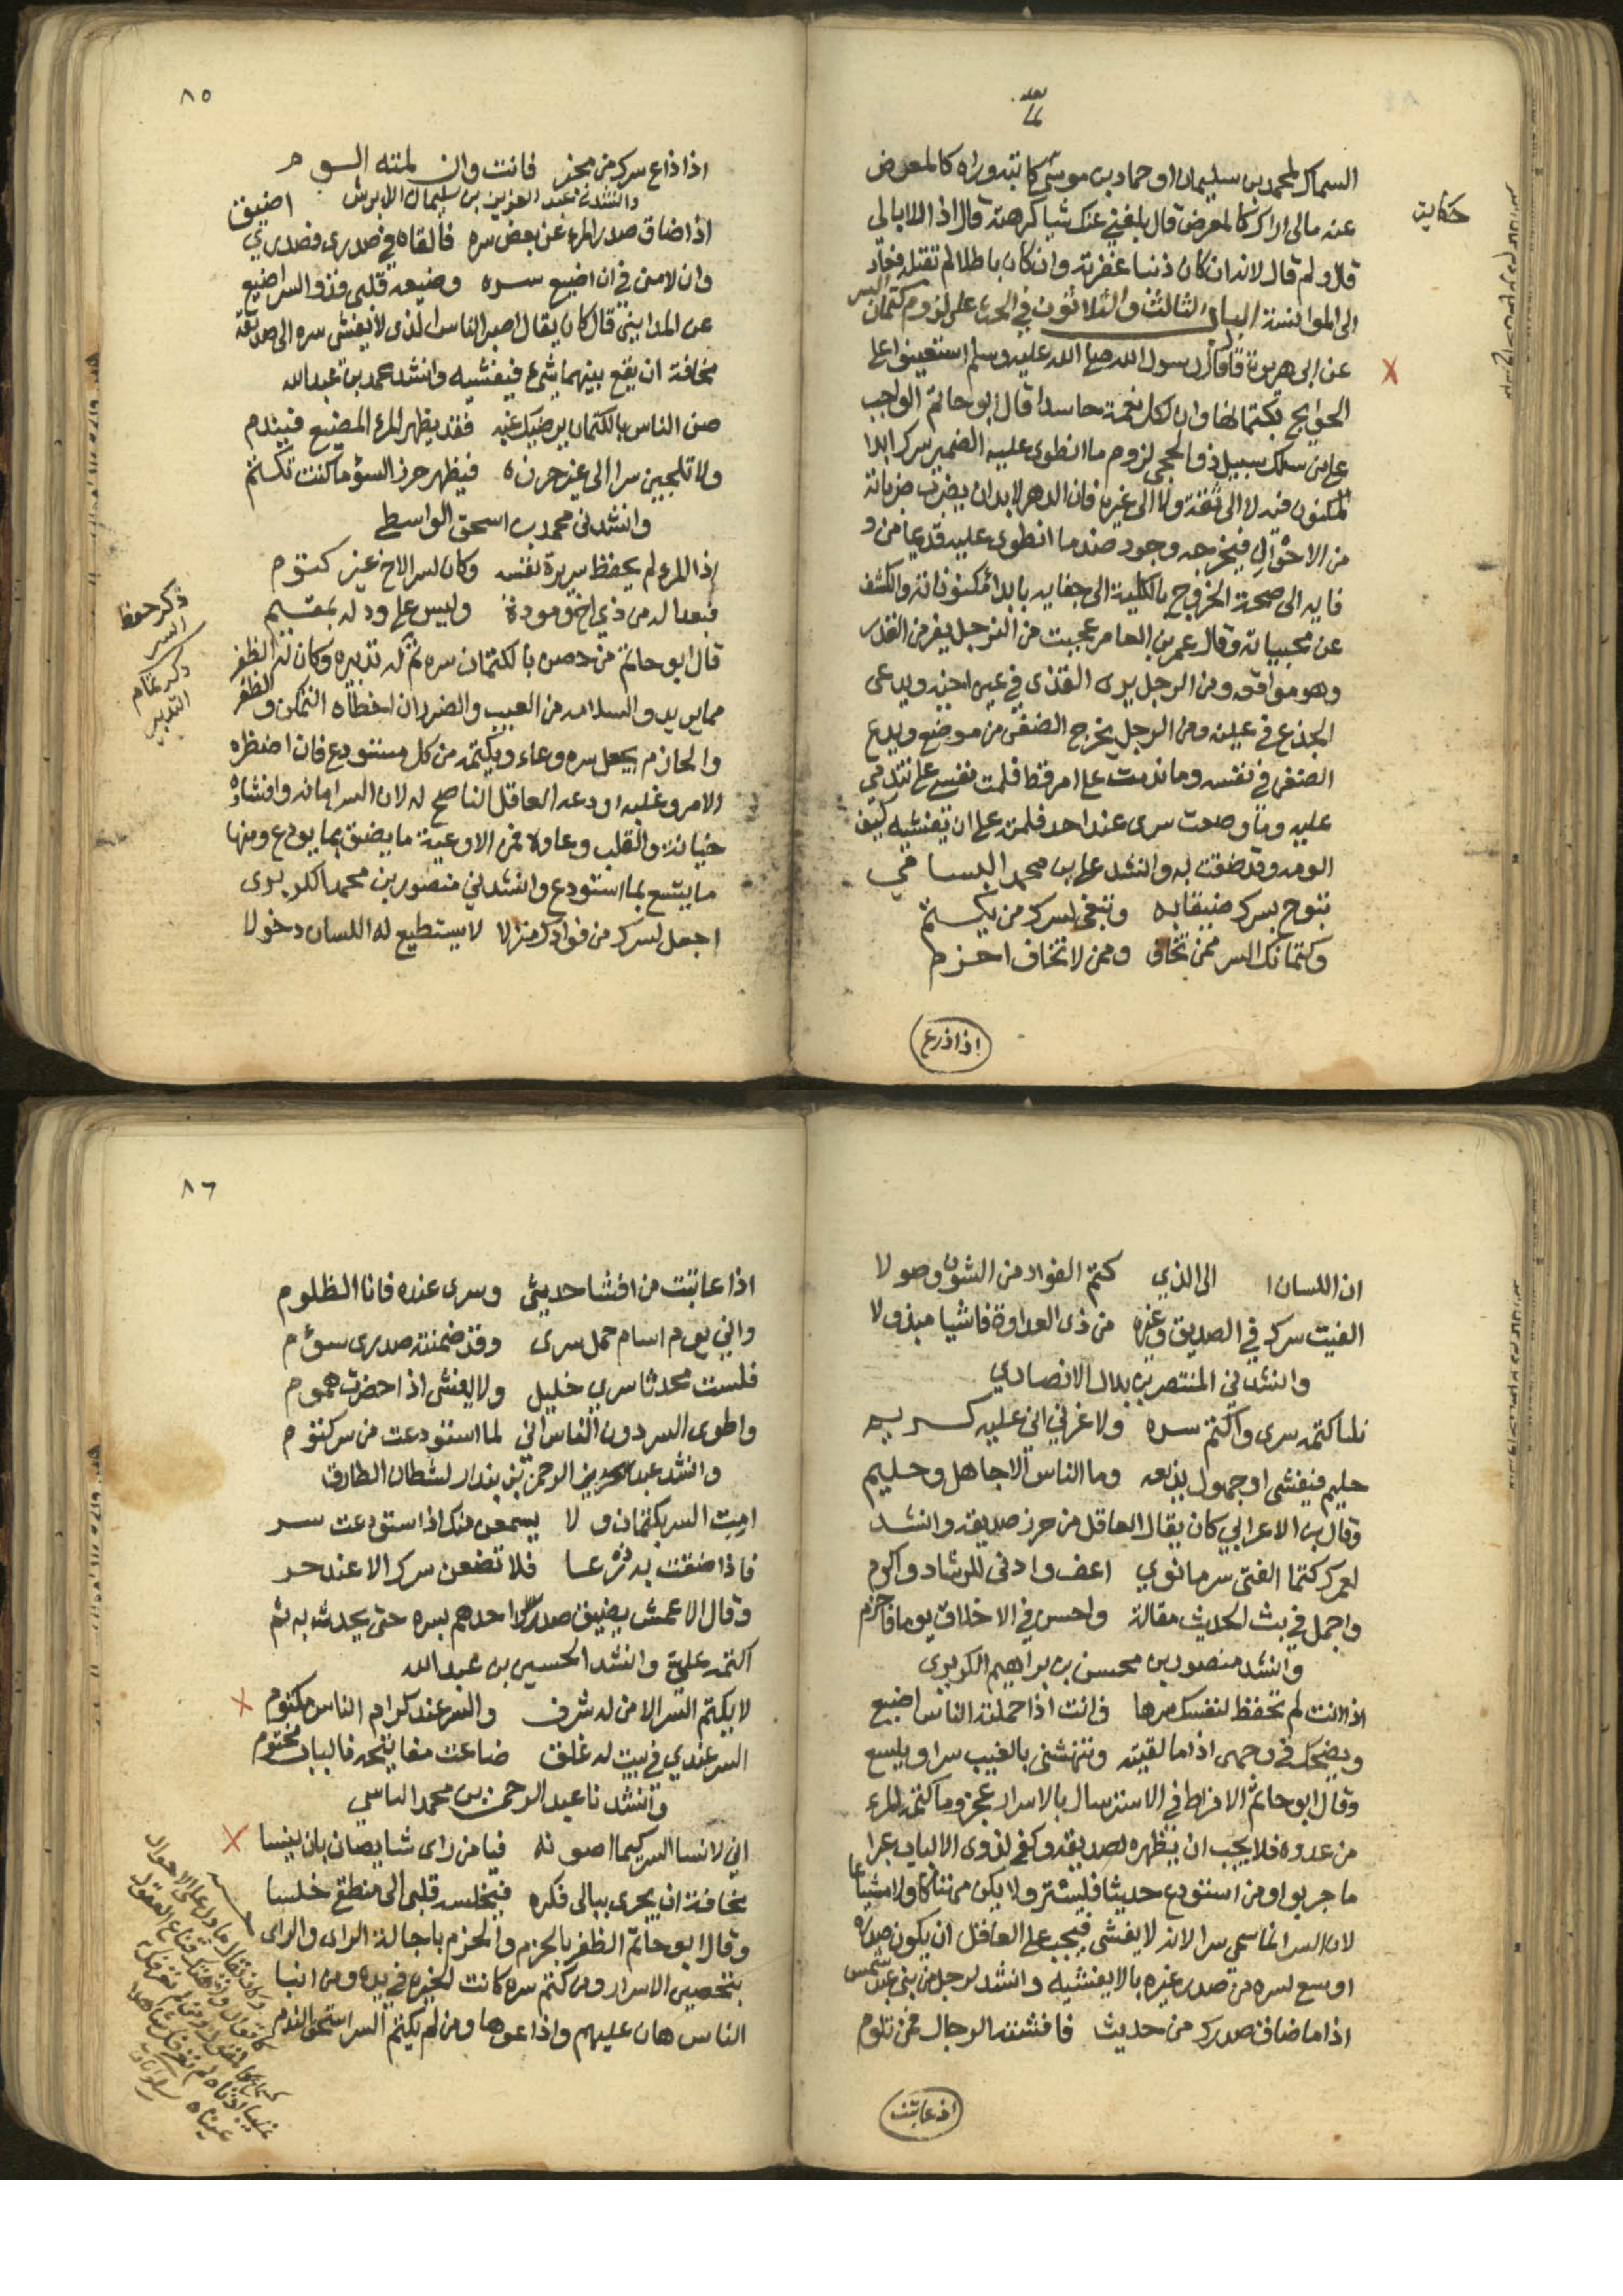 السماك لمحمد بن سليمان او حماد بن موسى كاتبه وراه كالمعرض
حكاية
عنه مالى اراك كالمعرض قال بلغني عنك شيا كرهته قال اذا لا ابالى
قال ولم قال لانه ان كان ذنبا غفرته وان كان باطلا لم تقبله فعاد
الى الموانسة الباب الثالث والثلاثون في الحث على لزوم كتمان السر
عن ابى هريرة قال قال رسول الله صلى الله عليه وسلم استعينوا على
الحوايج بكتمانها وان لكل نعمة حاسدا قال ابو حاتم الواجب
على من سلك سبيل ذوى الحجى لزوم ما انطوى عليه الضمير بتركه ابدا
المكنون فيه لا الى ثقة ولا الى غيره فان الدهر لا بد ان يضرب ضرباته
من الاحوال فيخرجه وجود ضد ما انطوى عليه قديما من و
فايه الى صحة الخروج بالكلية الى جفايه بابداء مكنوناته والكشف
عن مخبياته وقال عمر بن العاص عجبت من الرجل يفر من القدر
وهو مواقعه ومن الرجل يرى القذى في عين اخيه ويدعى
الجذع في عينه ومن الرجل يخرج الضغن من موضع ويدع
الضغن في نفسه وما ندمت على امر قط فلمت نفسي على تندمي
عليه وما وضعت سرى عند احد فلمته على ان يفشيه كيف
الومه وقد ضقت به وانشد على بن محمد البسامي
تبوح بسرك ضيقا به وتبغى لسرك من يكتم
وكتمانك السر ممن تخاف وممن لا تخاف احزم
اذا ذاع
٨٥
اذا ذاع سرك من مخبر فانت وان لمته الوم
وانشدنى عبد العزيز بن سليمان الابرش
اذا ضاق صدر المرء عن بعض سره فالقاه في صدرى فصدرى اضيق
وان لامنى في ان اضيع سره وضيعه قلبي فذو السر اضيع
عن المدايني قال كان يقال اصبر الناس الذى لا يفشى سره الى صديقه
مخافة ان يقع بينهما شىء فيفشيه وانشد محمد بن عبدالله
صن الناس بالكتمان يرضيك غبه فقد يظهر المرء المضيع فيندم
ولا تلجين سرا الى غير حرزه فيظهر حرز السؤ ما كنت تكتم
وانشدنى محمد بن اسحق الواسطى
اذا المرء لم يحفظ سريرة نفسه وكان لسر الاخ غير كتوم
فبعدا له من ذي اخ ومودة وليس على ود له بمقيم
ذكر حفظ السر
قال ابو حاتم من حصن بالكتمان سره تم له تدبيره وكان له الظفر
ذكر تمام التدبير
مما يريد والسلامه من العيب والضرر ان اخطاه التمكن والظفر
والحازم يجعل سره وعاء ويكتمه من كل مستودع فان اضطره
الامر وغلبه اودعه العاقل الناصح له لان السر امانه وافشاؤه
خيانه والقلب وعاوه فمن الاوعية ما يضيق بما يودع ومنها
ما يتسع لما استودع وانشدني منصور بن محمد الكريزى
اجعل لسرك من فوادك منزلا لا يستطيع له اللسان دخولا
ان اللسان ا الى الذي كتم الفواد من الشون وصولا
الفيت سرك في الصديق وغيره من ذى العداوة فاشيا مبذولا
وانشدني المنتصر بن بلال الانصاري
ساكتمه سرى واكتم سره ولا غرني انى عليه كريم
حليم فيفشى او جهول يذيعه وما الناس الا جاهل وحليم
وقال بن الاعرابي كان يقال العاقل من حرز صديقه وانشد
لعمرك كتما الفتى سر ما نوي اعف وادنى للرشاد واكرم
واجمل في بث الحديث مقالة واحسن في الاخلاق يوما فاحزم
وانشد منصور بن محسن بن براهيم الكريزى
اذا انت لم تحفظ لنفسك سرها فانت اذا حملته الناس اضيع
ويضحك في وجهى اذا ما لقيته وتنهشني بالغيب سرا ويلسع
وقال ابو حاتم الافراط في الاسترسال بالاسرار عجز وما كتمه المرء
من عدوه فلا يجب ان يظهره لصديقه وكفى لذوى الالباب عبرا
ما جربوا ومن استودع حديثا فليستر ولا يكن مهتاكا ولا مشياعا
لان السر انما سمي سرا لانه لا يفشى فيجب على العاقل ان يكون صدره
اوسع لسره من صدر غيره بالا يفشيه وانشد لرجل من بنى عبد شمس
اذا ما ضاق صدرك من حديث فافشته الرجال فمن تلوم
اذ عاتبت
٨٦
اذا عاتبت من افشا حديثى وسرى عنده فانا الظلوم
واني يوم اسام حمل سرى وقد ضمنته صدرى سؤم
فلست محدثا سري خليل ولا يفشى اذا حضرت هموم
واطوى السر دون الناس اني لما استودعت من سر كتوم
وانشد عبد العزيز الرحمن بن بندار لشطان الطارق
امت السر بكتمان و لا يسمعن منك اذا استودعت سر
فاذا ضقت به ذرعا فلا تضعن سرك الا عند حر
وقال الاعمش يضيق صدر احدهم بسره حتى يحدث به ثم
اكتمه على وانشد الحسين بن عبدالله
لا يكتم السر الا من له شرف والسر عند كرام الناس مكتوم
السر عندي في بيت له غلق ضاعت مفاتيحه فالباب مختوم
وانشدنا عبد الرحمن بن محمد
اني لانسا السر كيما اصونه فيا من راى شيا يصان بان ينسا
مخافة ان يجرى ببالى فكره فيخلسه قلبى الى منطقى خلسا
وقال ابو حاتم الظفر بالحزم والحزم باجالة الراى والراى
بتحصين الاسرار ومن كتم سره كانت الخيره في يده ومن انبا
الناس هان عليهم واذاعوها ومن لم يكتم السر استحق الندم